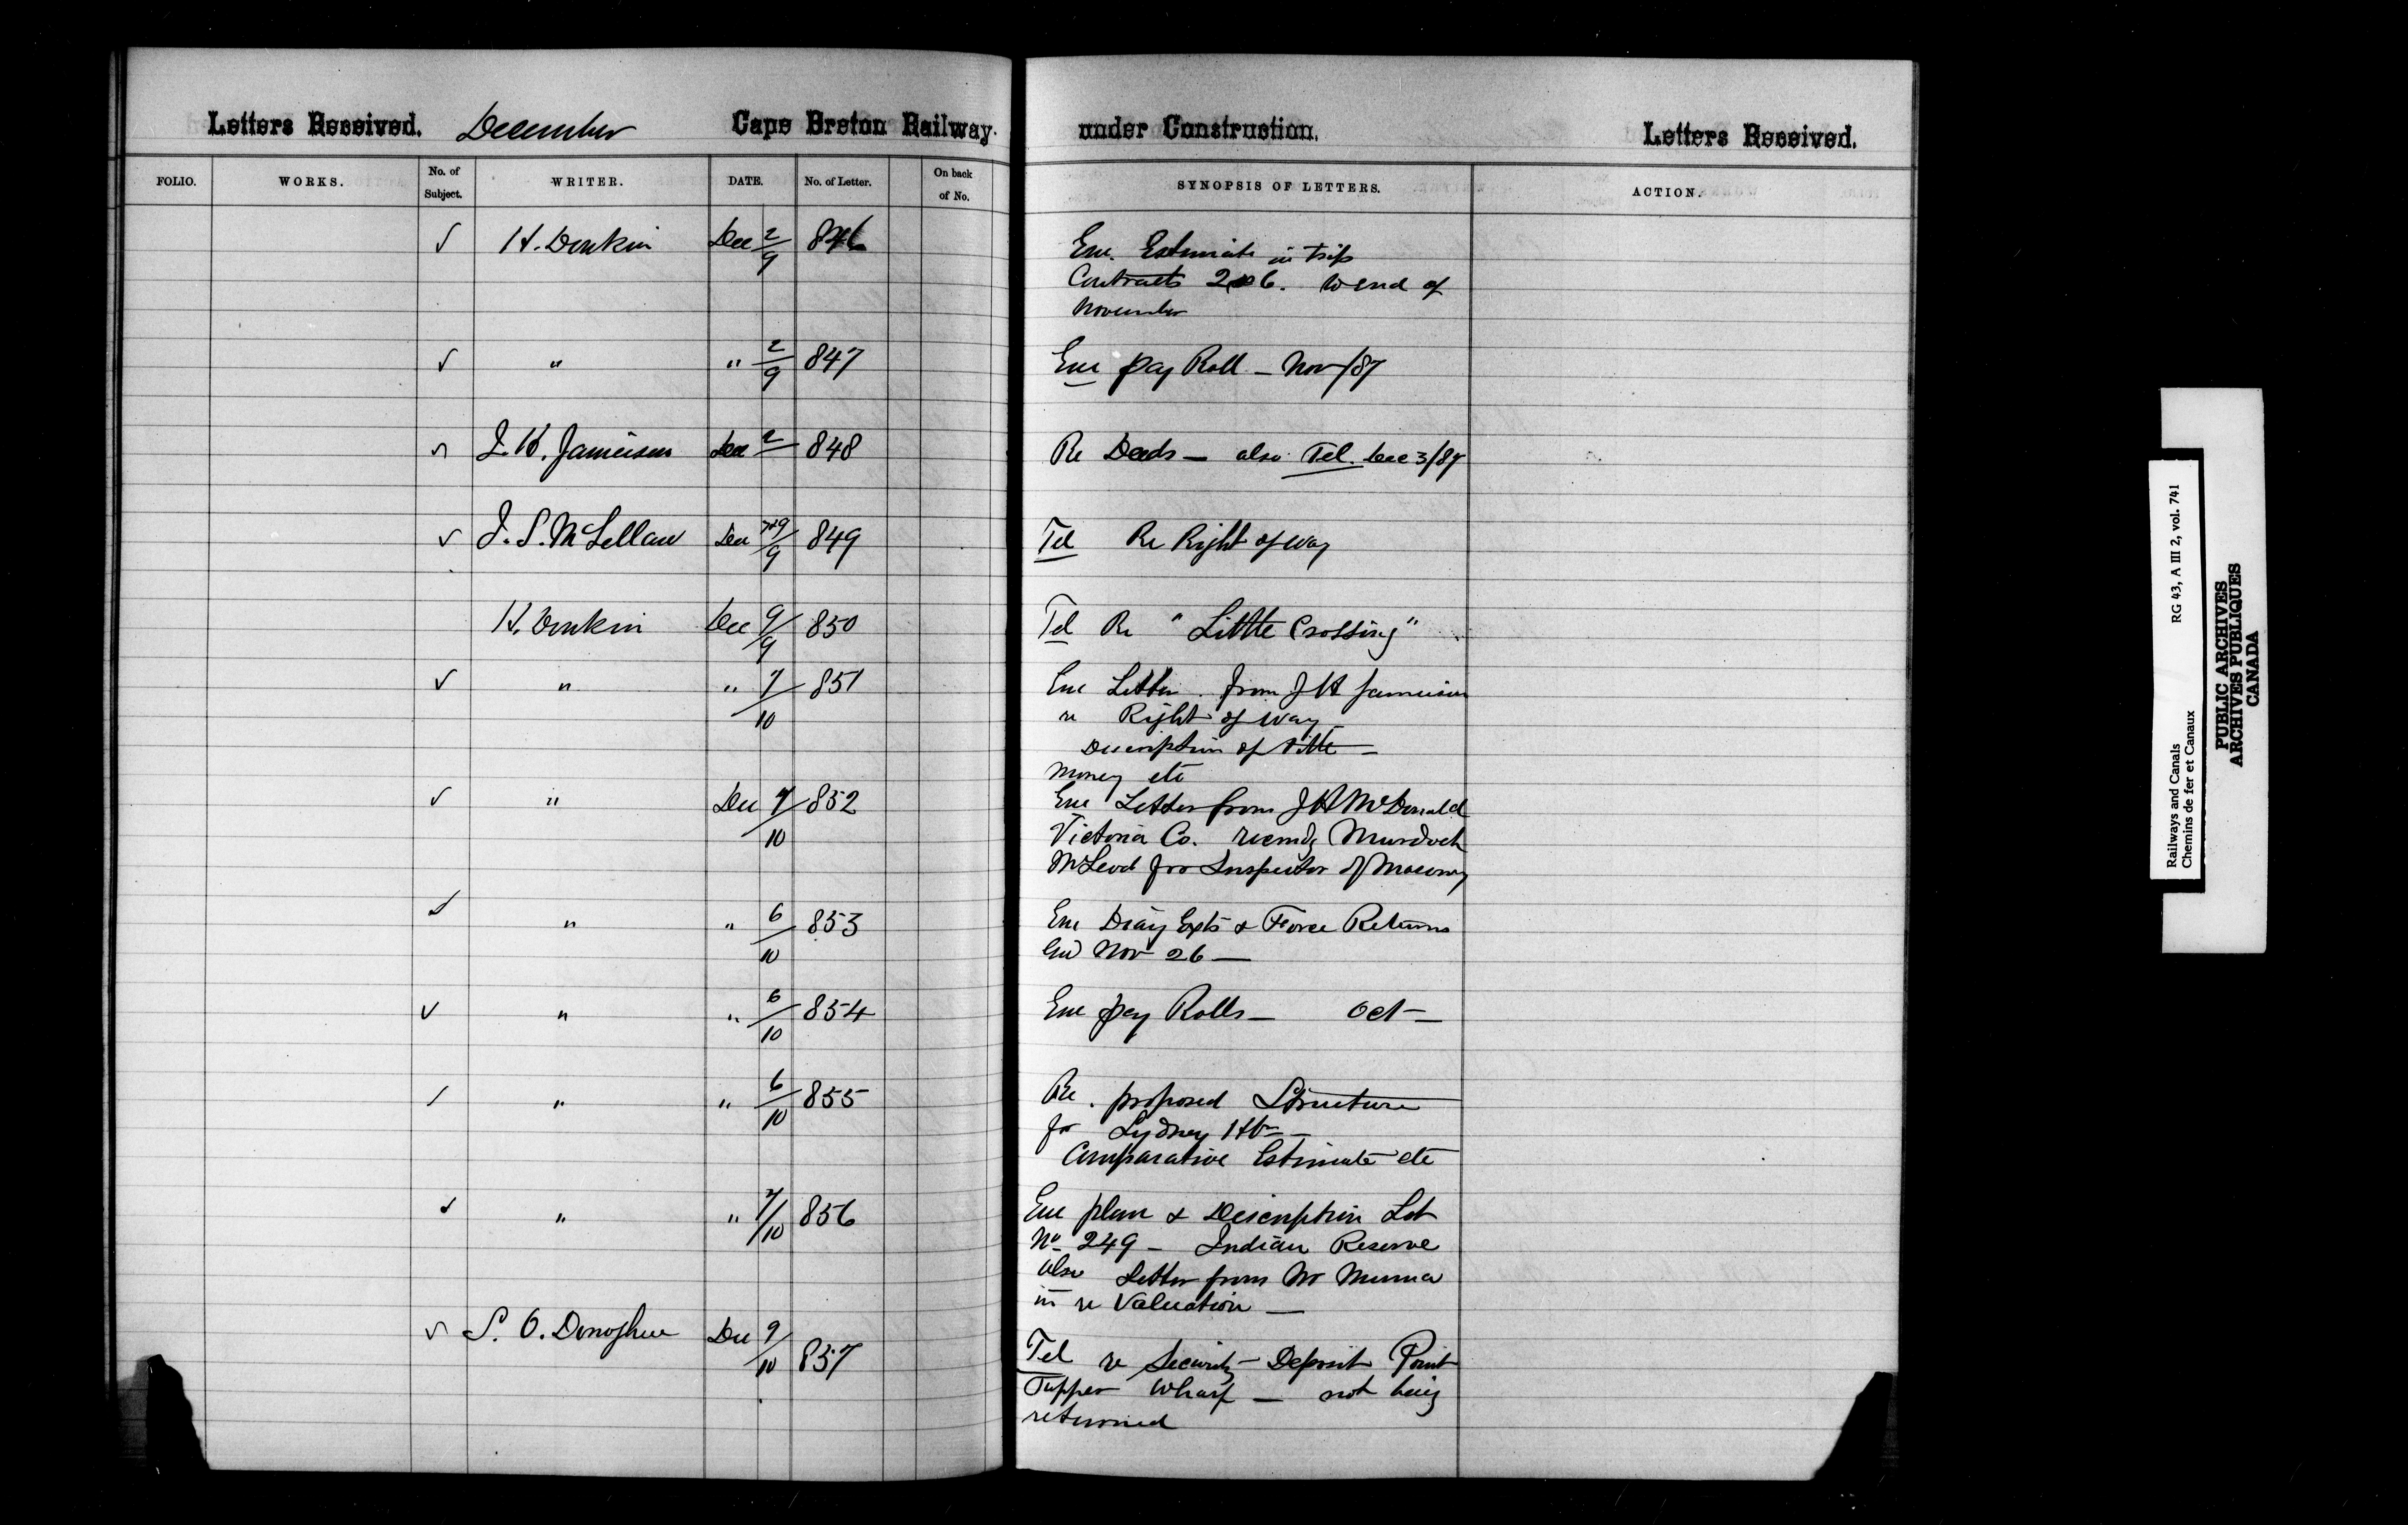 Letters Received. December Cape Breton Railway under Construction. Letters Received.
FOLIO. WORKS. No. of Subject. WRITER. DATE. No. of Letter. On back of No. SYNOPSIS OF LETTERS. ACTION.
✓ H. Donkin Dec 2/9 846 Enc. Estimate in trip
Contracts 2 6. to end of
November
✓ " " 2/9 847 Enc pay Roll — Nov/87
✓ J. H. Jamieson Dec 2 848 Re Deeds — also Tel. Dec 3/87
✓ J. S. McLellan Dec 9/9 849 Tel Re Right of way
H. Donkin Dec 9/9 850 Tel Re "Little Crossing"
✓ " " 7/10 851 Enc Letter from J H Jamieson
re Right of way
Description of title —
money etc
✓ " Dec 7/10 852 Enc Letter from J H McDonald
Victoria Co. recmdg Murdoch
McLeod for Inspector of Masonry
✓ " " 6/10 853 Enc Diary Exts & Force Returns
End Nov 26 —
✓ " " 6/10 854 Enc pay Rolls — Oct —
✓ " " 6/10 855 Re. proposed Structure
for Sydney Hbr —
Comparative Estimate etc
✓ " " 7/10 856 Enc plan & Description Lot
No 249 — Indian Reserve
also Letter from
in re Valuation —
✓ S. O. Donoghue Dec 9/10 857 Tel re Security Deposit Point
Tupper Wharf — not being
returned
Railways and Canals RG 43, A III 2, vol. 741
Chemins de fer et Canaux
PUBLIC ARCHIVES
ARCHIVES PUBLIQUES
CANADA